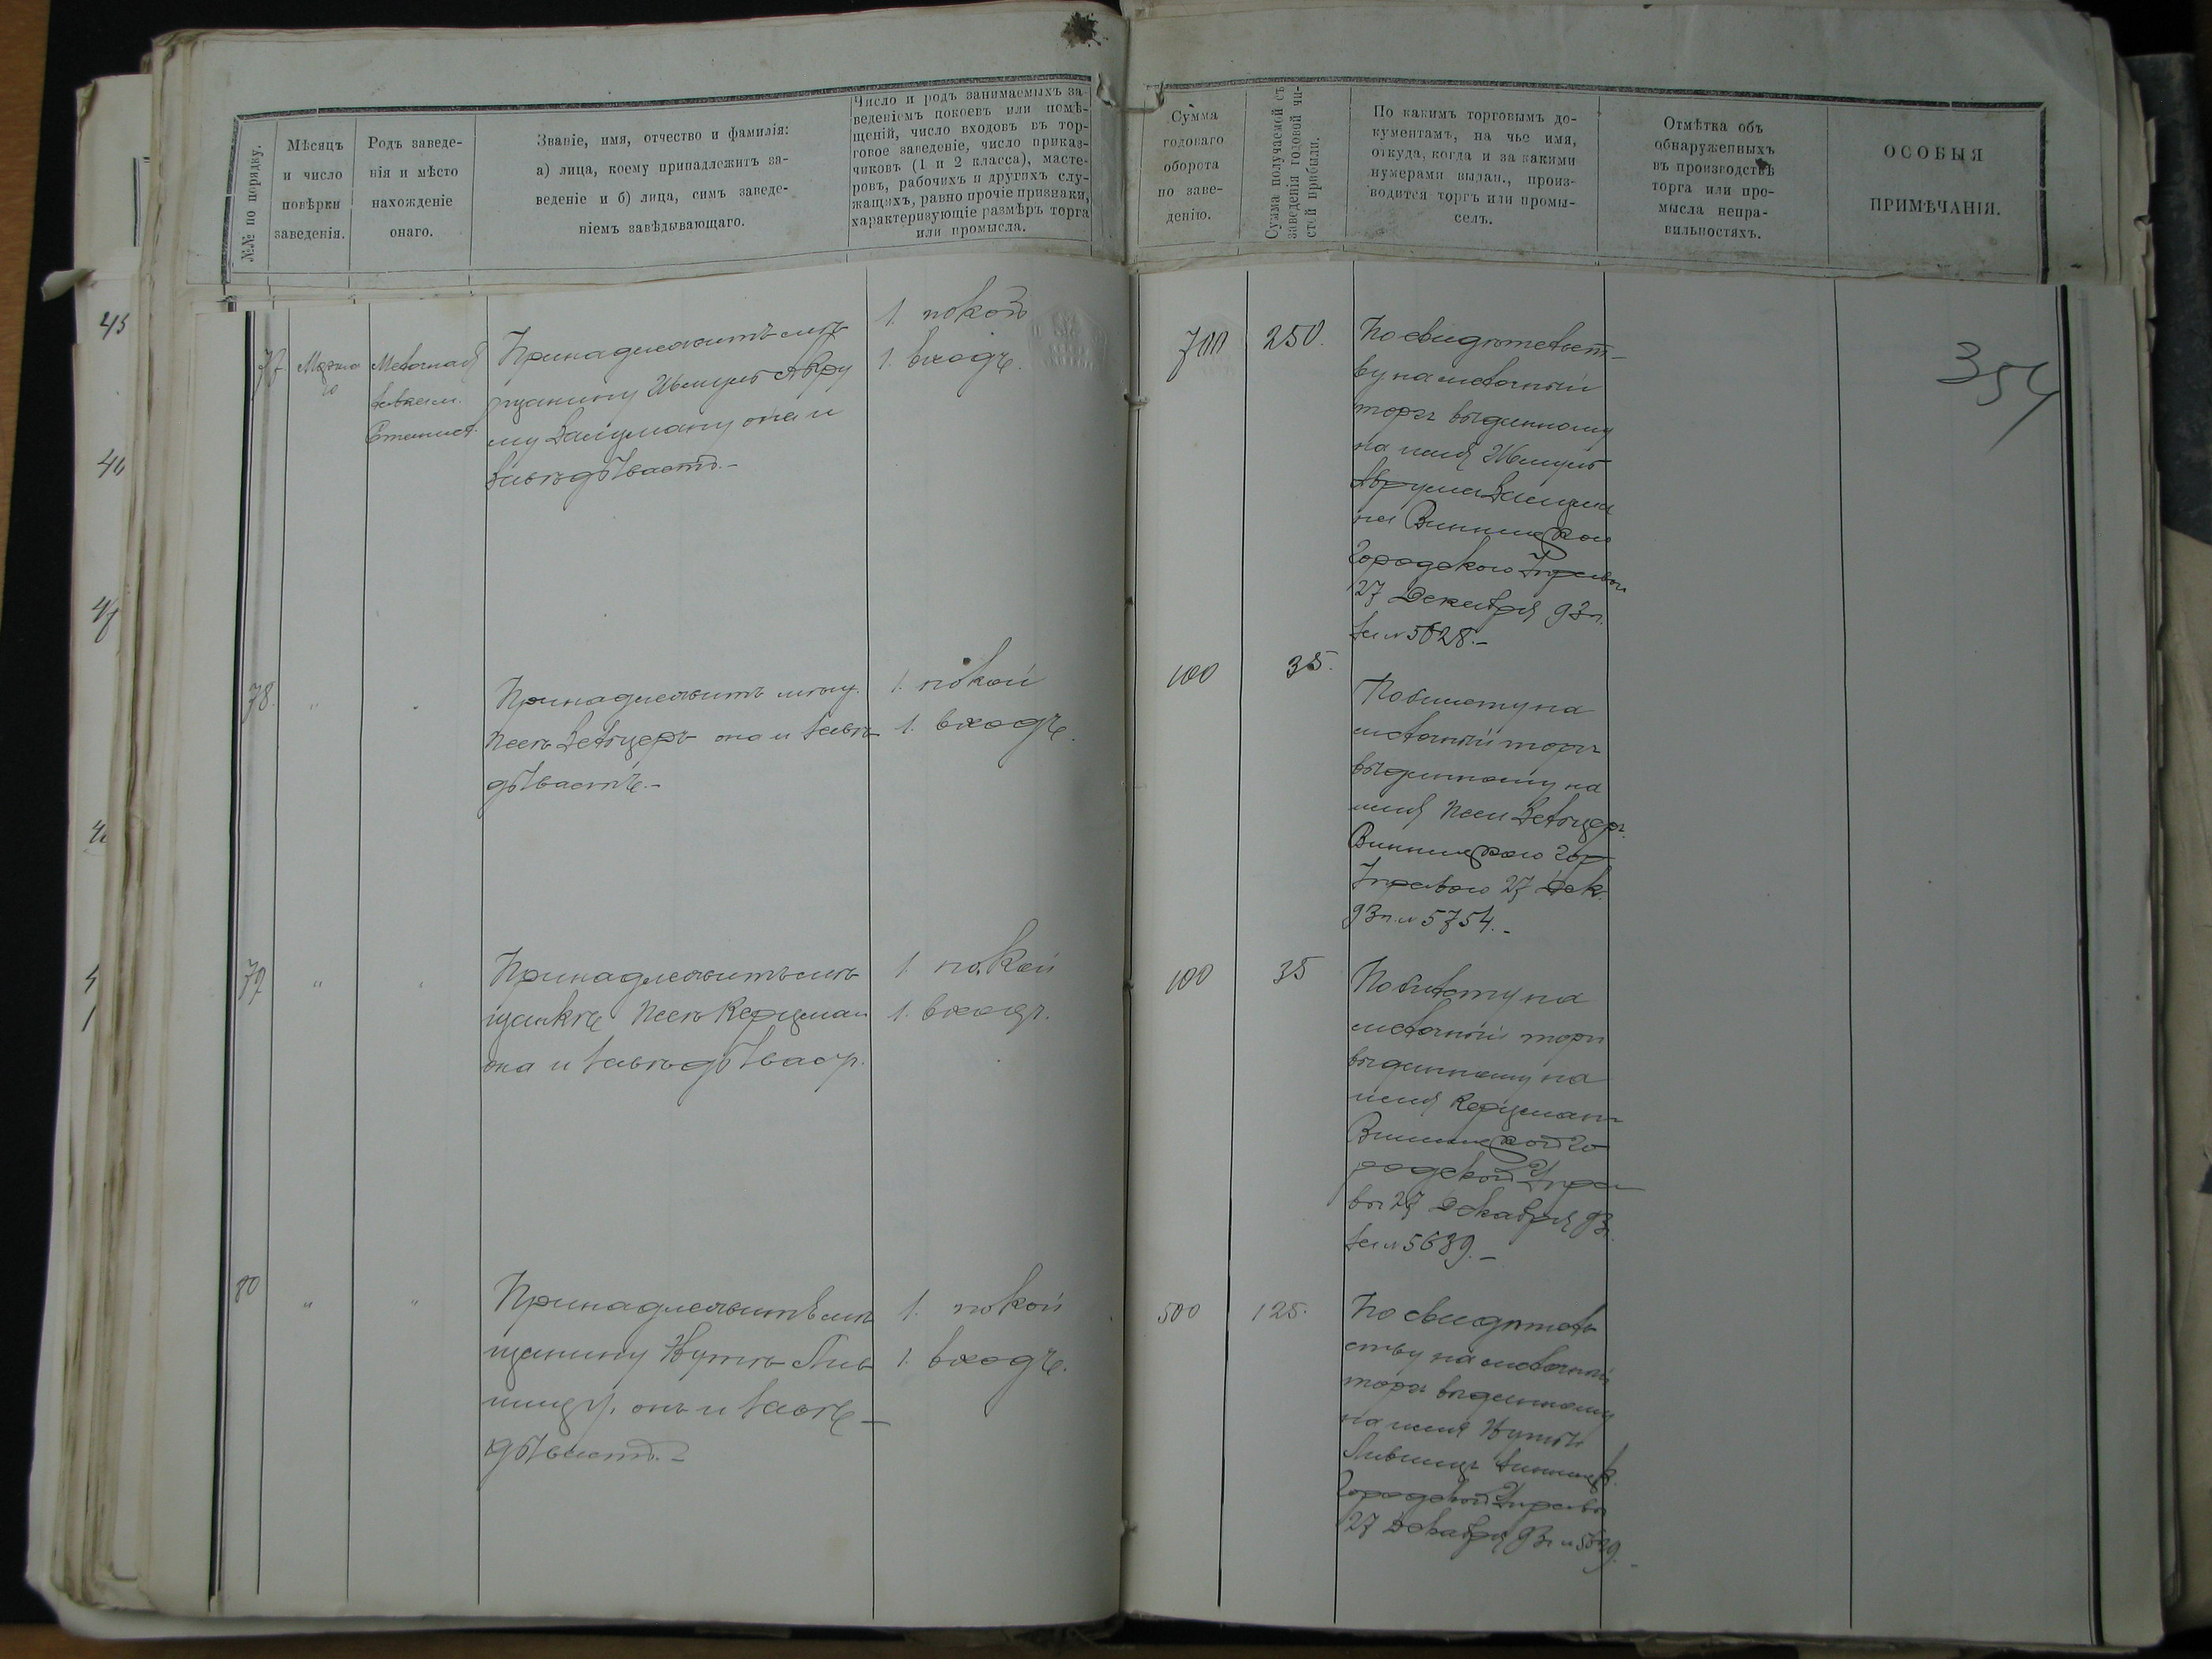 №№ по порядку.
Мѣсяцъ
и число
повѣрки
заведенія.
Родъ заведе-
нія и мѣсто
нахожденіе
онаго.
Званіе, имя, отчество и фамилія:
а) лица, коему принадлежитъ за-
веденіе и б) лица, симъ заведе-
ніемъ завѣдывающаго.
Число и родъ занимаемыхъ за-
веденіемъ покоевъ или помѣ-
щеній, число входовъ въ тор-
говое заведеніе, число приказ-
чиковъ (1 и 2 класса), масте-
ровъ, рабочихъ и другихъ слу-
жащихъ, равно прочіе признаки,
характеризующіе размѣръ торга
или промысла.
Сумма
годоваго
оборота
по заве-
денію.
Сумма получаемой съ
заведенія годовой чи-
стой прибыли.
По какимъ торговымъ до-
кументамъ, на чье имя,
откуда, когда и за какими
нумерами выдан., произ-
водится торгъ или промы-
селъ.
Отмѣтка объ
обнаруженныхъ
въ производствѣ
торга или про-
мысла непра-
вильностяхъ.
ОСОБЫЯ
ПРИМѢЧАНІЯ.
354
45
77
Мелочная
лавка м.
Принадлежитъ мѣ
щанину
он и
завѣдываетъ.-
1. покой
1. входъ.
700
250.
По свидѣтельст-
ву на мелочный
торгъ выданному
на имя
Винницкою
Городскою Управою
27 Декабря 93 г.
за № 5628.-
78.
"
Принадлежитъ мѣщ.
она и завѣ
дываетъ.-
1. покой
1. входъ.
100
35.
По билету на
мелочный торгъ
выданному на
имя
Винницкою Гор
Управою 27 Дек.
93 г. № 5754.-
79
"
"
Принадлежитъ мѣ
щанкѣ Песѣ Керцман
она и завѣдывает.
1. покой
1. входъ.
100
35
По билету на
мелочный торгъ
выданному на
имя Керцманъ
Винницкой Го
родской Упра
вы 27 Декабря 93 г.
за № 5639.-
80
"
"
Принадлежитъ мѣ
щанину Нутѣ Лив
шицу, онъ и завѣ-
дываетъ.-
1. покой
1. входъ.
500
125.
По свидѣтель
ству на мелочный
торгъ выданному
на имя Нутѣ
Лившицъ Винниц.
Городской Управы
27 Декабря 93 г. №